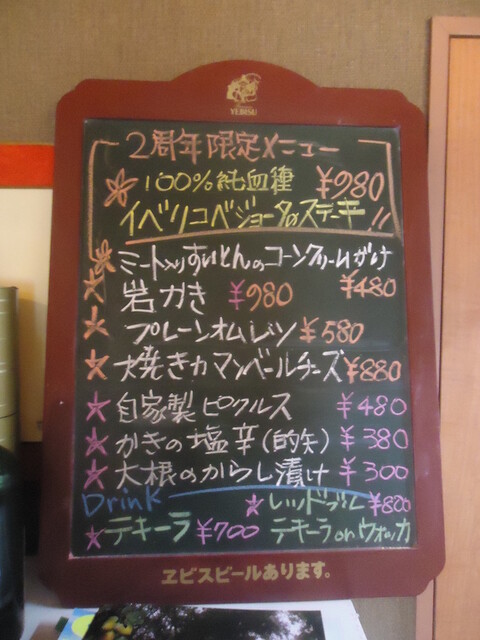 YEBISU
2周年限定メニュー
☆100%純血種 ¥980
イベリコベジョータのステーキ!!
☆ミート入りすいとんのコーンクリームがけ
¥480
☆岩がき ¥980
☆プレーンオムレツ ¥580
☆焼きカマンベールチーズ ¥880
☆自家製ピクルス ¥480
☆かきの塩辛(的矢) ¥380
☆大根のからし漬け ¥300
Drink
☆レッドブル ¥800
☆テキーラ ¥700 テキーラ or ウォッカ
ヱビスビールあります。